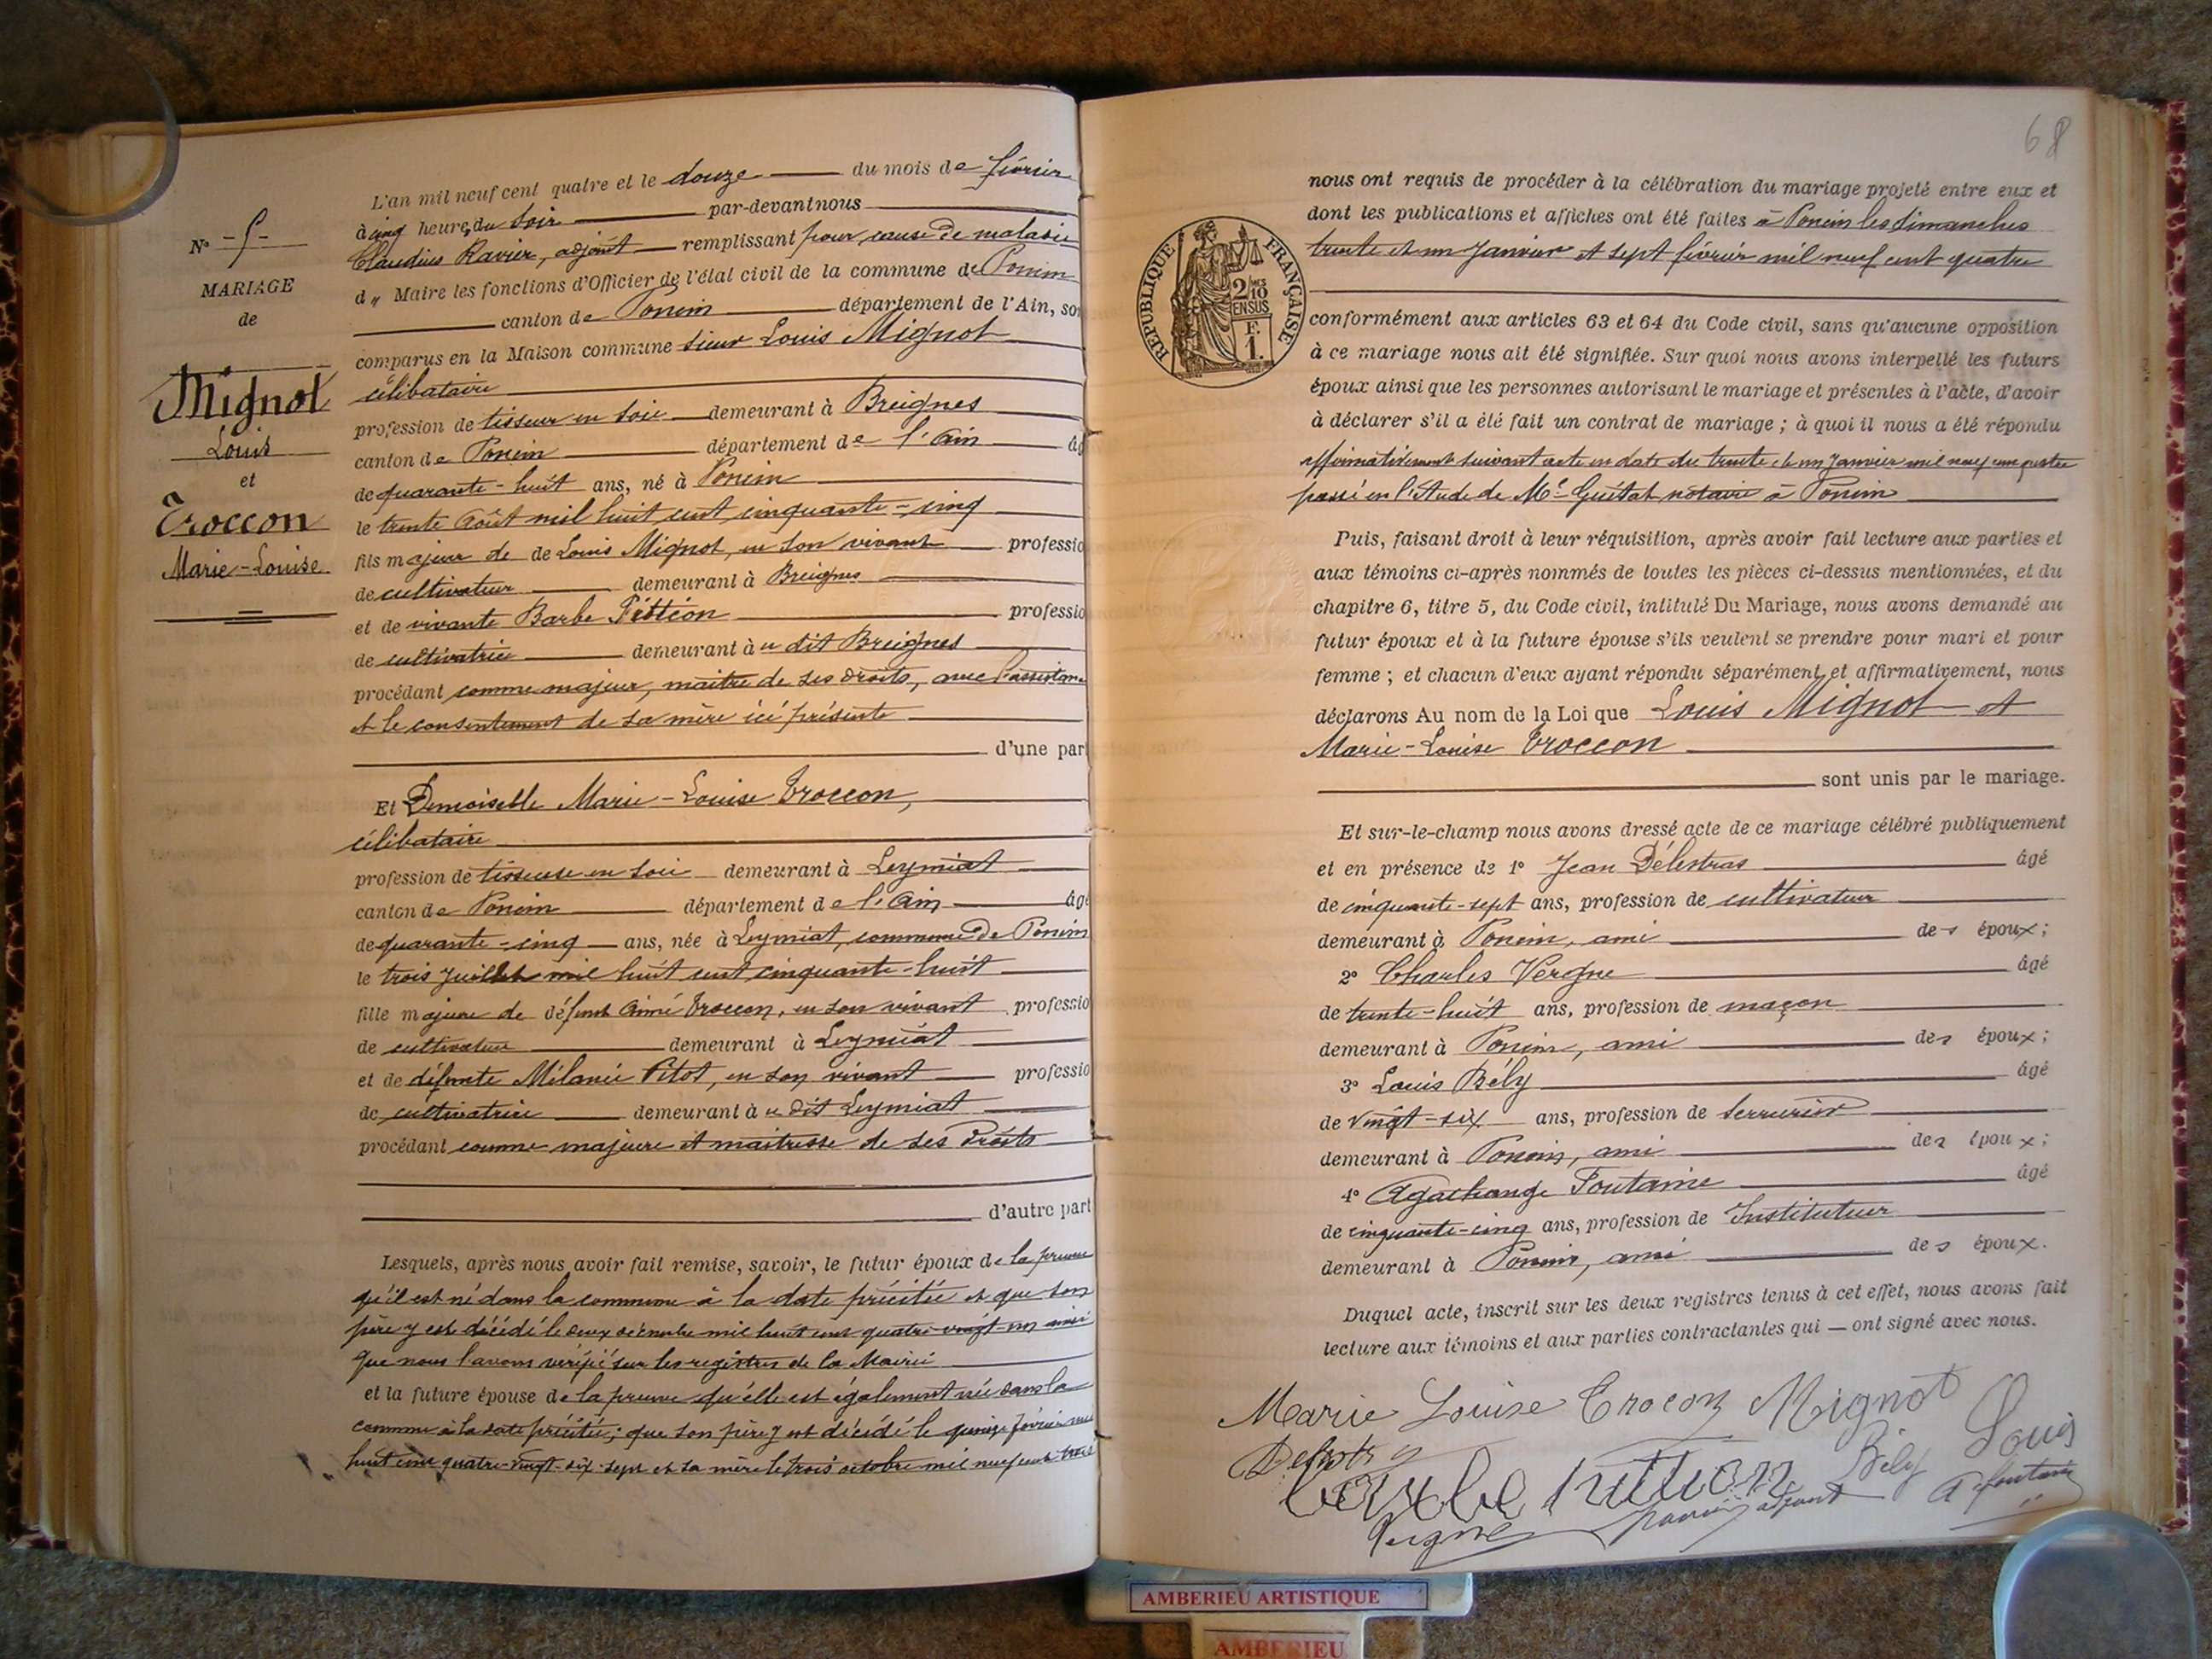 N° -5-
MARIAGE
de
Mignot
Louis
et
Troccon
Marie-Louise
L'an mil neuf cent quatre et le douze du mois de février
à cinq heures du soir par-devant nous
Claudius Ravier, adjoint remplissant pour cause de maladie
d u Maire les fonctions d'Officier de l'état civil de la commune de Poncin
canton de Poncin département de l'Ain, so
comparus en la Maison commune sieur Louis Mignot
célibataire
profession de tisseur en soie demeurant à Breignes
canton de Poncin département de l'Ain âg
de quarante-huit ans, né à Poncin
le trente Août mil huit cent cinquante-cinq
fils majeur de de Louis Mignot, en son vivant professio
de cultivateur demeurant à Breignes
et de vivante Barbe Pittion professio
de cultivatrice demeurant à u dit Breignes
procédant comme majeur, maître de ses droits, avec l'assistance
et le consentement de sa mère ici présente
d'une part
Et Demoiselle Marie-Louise Troccon,
célibataire
profession de tisseuse en soie demeurant à Leymiat
canton de Poncin département de l'Ain âgé
de quarante-cinq ans, née à Leymiat, commune de Poncin
le trois Juillet mil huit cent cinquante-huit
fille majeure de défunt Aimé Troccon, en son vivant professio
de cultivateur demeurant à Leymiat
et de défunte Mélanie Pitot, en son vivant professio
de cultivatrice demeurant à u dit Leymiat
procédant comme majeure et maitresse de ses droits
d'autre part
Lesquels, après nous avoir fait remise, savoir, le futur époux de la preuve
qu'il est né dans la commune à la date précitée et que son
père y est décédé le deux décembre mil huit cent quatre-vingt-un ainsi
que nous l'avons vérifié sur les registres de la Mairie
et la future épouse de la preuve qu'elle est également née dans la
commune à la date précitée; que son père y est décédé le quinze février mil
huit cent quatre-vingt-dix-sept et sa mère le trois octobre mil neuf cent trois
68
RÉPUBLIQUE FRANÇAISE
2/10
EN SUS
F.
1.
nous ont requis de procéder à la célébration du mariage projeté entre eux et
dont les publications et affiches ont été faites à Poncin les dimanches
trente et un Janvier et sept février mil neuf cent quatre
conformément aux articles 63 et 64 du Code civil, sans qu'aucune opposition
à ce mariage nous ait été signifiée. Sur quoi nous avons interpellé les futurs
époux ainsi que les personnes autorisant le mariage et présentes à l'acte, d'avoir
à déclarer s'il a été fait un contrat de mariage ; à quoi il nous a été répondu
affirmativement suivant acte en date du trente et un Janvier mil neuf cent quatre
passé en l'étude de Me Guétat notaire à Poncin
Puis, faisant droit à leur réquisition, après avoir fait lecture aux parties et
aux témoins ci-après nommés de toutes les pièces ci-dessus mentionnées, et du
chapitre 6, titre 5, du Code civil, intitulé Du Mariage, nous avons demandé au
futur époux et à la future épouse s'ils veulent se prendre pour mari et pour
femme ; et chacun d'eux ayant répondu séparément et affirmativement, nous
déclarons Au nom de la Loi que Louis Mignot et
Marie-Louise Troccon
sont unis par le mariage.
Et sur-le-champ nous avons dressé acte de ce mariage célébré publiquement
et en présence de 1° Jean Délestras âgé
de cinquante-sept ans, profession de cultivateur
demeurant à Poncin, ami des époux;
2° Charles Vergne âgé
de trente-huit ans, profession de maçon
demeurant à Poncin, ami des époux;
3° Louis Bély âgé
de vingt-six ans, profession de serrurier
demeurant à Poncin, ami des époux;
4° Agathange Fontaine âgé
de cinquante-cinq ans, profession de Instituteur
demeurant à Poncin, ami des époux.
Duquel acte, inscrit sur les deux registres tenus à cet effet, nous avons fait
lecture aux témoins et aux parties contractantes qui — ont signé avec nous.
Marie Louise Trocon Mignot Louis
Delestras Bély
barbe pittion A fontaine
Vergne Ravier adjoint
AMBERIEU ARTISTIQUE
AMBERIEU